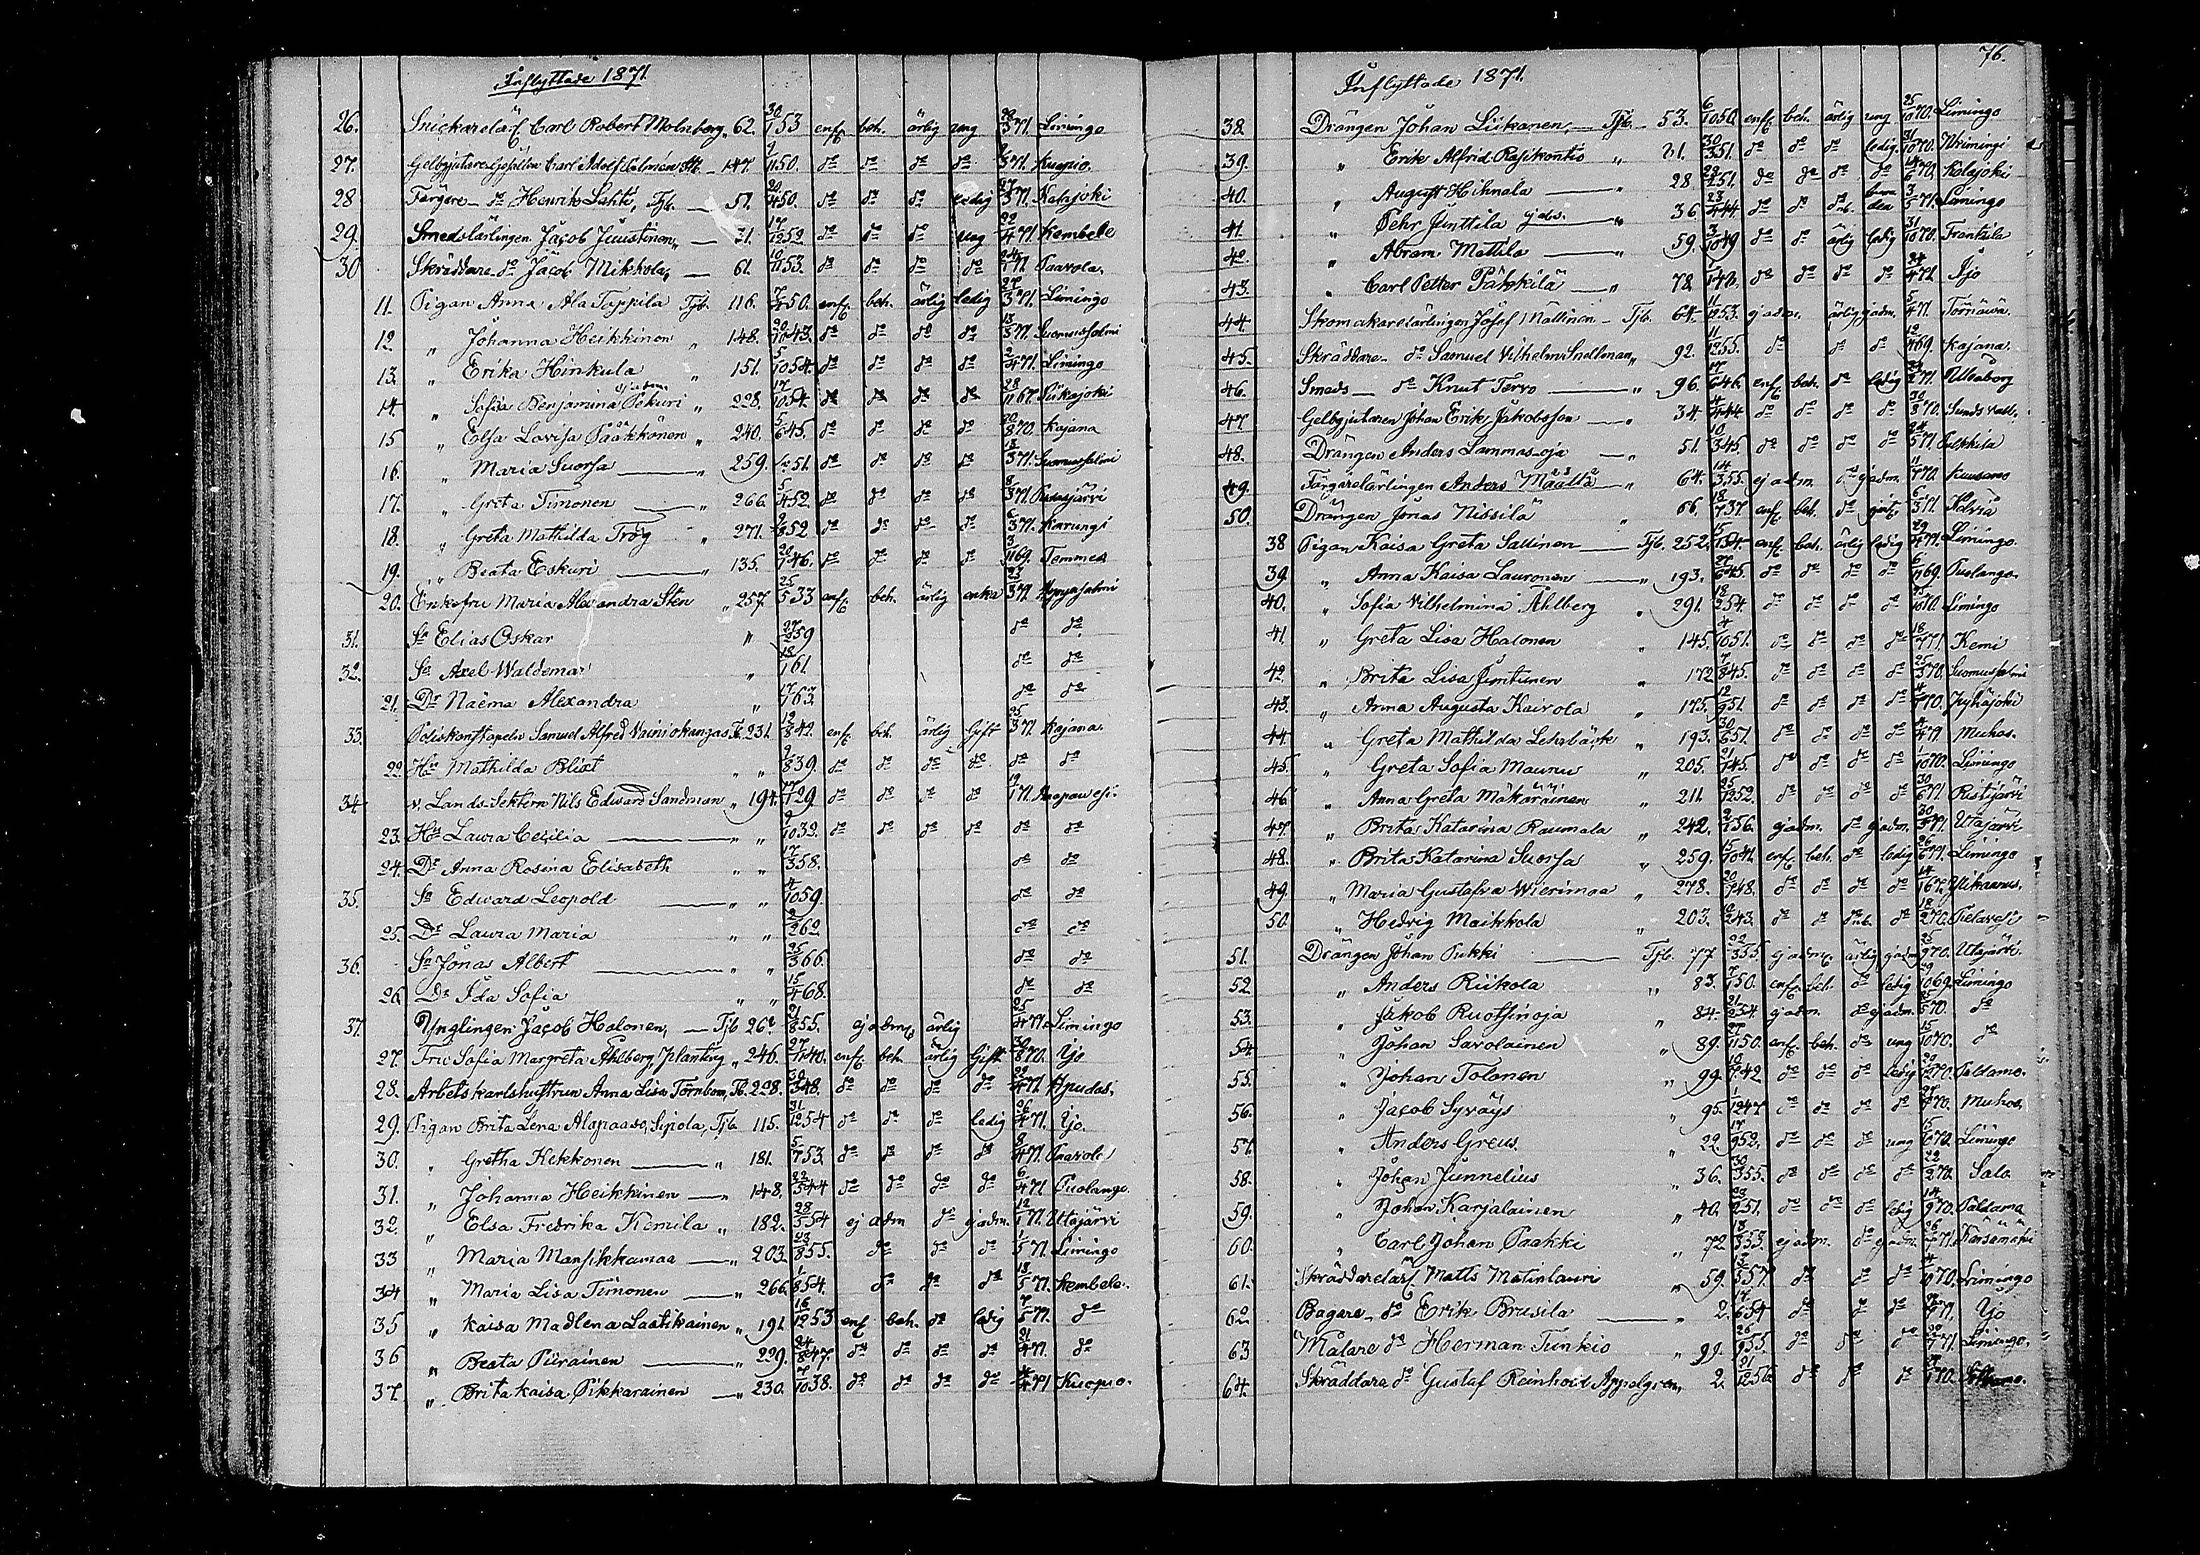 Inflyttade 1871.
26. Snickarelärl. Carl Robert Malmberg, 62. 30/1 53 enf. beh. ärlig ung 28/3 71. Limingo
27. Gelbgjutare Gesällen Carl Adolf 147. 11 50. do do do do 3 71. Kuopio.
28 Färgare- do Henrik Lahti, Tjb. 51. 20/4 50. do do do ledig 3 71. Kalajoki
29. Smedslärlingen Jacob Juustinen, 31. 17/12 52 do do do ung 22/4 71. Kembele
30 Skräddare do Jacob Mikkola, 61. 10/11 53. do do do do 71. Paavola.
11. Pigan Anna Ala Tuppila Tjb. 116. 7/4 50. enf. beh. ärlig ledig 27/3 71. Limingo
12. " Johanna Heikkinen " 148. 20/10 43. do do do do 13/3 71. Suomussalmi
13. " Erika Hinkula " 151. 5/10 54. do do do do 2/4 71. Limingo
14. " Sofia Benjamina Pekuri " 228. 17/10 54. do do do do 28/11 67. Siikajoki
15 " Elsa Lovisa Pääkkönen " 240. 5/6 45. do do do do 20/8 70. Kajana
16. " Maria Suorsa " 259. 51. do do do do 13/3 71. Suomussalmi
17. " Greta Timonen " 266. 5/4 52. do do do do 8/3 71. Pudasjärvi
18. " Greta Mathilda Trög " 271. 9/8 52 do do do do 6/3 71. Karungi
19. " Beata Eskuri " 135. 20/7 46. do do do do 3/11 69. Temmes
20. Enkefru Maria Alexandra Sten " 257. 25/5 33 enf. beh. ärlig enka 23/3 71. Hyrynsalmi
31. Sn Elias Oskar " 27/2 59 do do
32. Sn Axel Waldemar " 18/1 61. do do
21. Dr Naëma Alexandra " 17/1 63. do do
33. Poliskonstapeln Samuel Alfred Wainiokangas Tb. 231. 12/8 42. enf. beh. ärlig Gift 25/3 71. Kajana.
22. Hu Mathilda Blist " " 9/8 39. do do do do do do
34. v. Lands-Sektern Nils Edward Sandman " 194. 1 29 do do do do 19/1 71. Haapavesi.
23. Hu Laura Cecilia " " 9/10 32. do do do do do do
24. Dr Anna Rosina Elisabeth " " 17/3 58. do do
35. Sn Edward Leopold " " 4/10 59. do do
25. Dr Laura Maria " " 2/2 62. do do
36. Sn Jonas Albert " " 25/3 66. do do
26. Dr Ida Sofia " " 15/4 68. do do
37. Ynglingen Jacob Halonen, Tjb 262 21/8 55. ej adm. ärlig 25/4 71. Limingo
27. Fru Sofia Margreta Ahlberg, " 246. 27/11 40. enf. beh. ärlig Gift 30/8 70. Ijo
28. Arbetskarlshustrun Anna Lisa Törnbom, Tb. 298. 30/3 48. do do do do 22/4 71. Hyvudas.
29. Pigan Brita Lena Alapaaso, Sipola, Tjb 115. 31/12 54 do do do ledig 26/4 71. Ijo.
30. " Gretha Kekkonen " 181. 5/7 53. do do do do 8/4 71. Paavola
31. " Johanna Heikkinen " 148. 22/5 44 do do do do 6/4 71 Puolango.
32. " Elsa Fredrika Kemila " 182. 28/5 54 ej adm do ej adm. 12/1 71. Utajärvi
33 " Maria Mansikkamaa " 203. 23/8 55. do do do 1/5 71. Limingo
34 " Maria Lisa Timonen " 266. 1/8 54. do do do 18/5 71. Kembele.
35 " Kaisa Madlena Laatikainen " 191. 16/12 53 enf. beh. do ledig 7/5 71. do
36 " Beata Piirainen " 229. 24/8 47. do do do do 21/4 71. do
37. " Brita Kaisa Pikkarainen " 230. 10 38. do do do do 4/4 71. Kuopio.
76.
Inflyttade 1871.
38. Drängen Johan Liikanen, Tjb. 53. 6/10 50. enf. beh. ärlig ung 25/10 70. Limingo
39. " Erik Alfrid Rasikontio " 21. 30/3 51. do do do ledig 31/10 70. Ukimingi
40. " August Hihnala " 28. 29/2 51. do do do do 14/6 70. Kalajoki
41. " Pehr Jinttila " 36. 23/4 44. do do 3/5 71. Limingo
42. " Abram Mattila " 59. 3/10 49 do do ärlig ledig 31/10 70. Frantsila
43. " Carl Petter Päkkilä " 78. do do do do 24/4 71. Ijo
44. Skomakarelärlingen Josef Mällinen Tjb. 64. 11/12 53. ej adm. ärlig ej adm. 5/4 71. Törnäwä.
45. Skräddare- do Samuel Vilhelm Snellman, 92. 11/12 55. do do do 12/4 69. Kajana.
46. Smeds do Knut Tervo " 96. 17/6 46. enf. beh. do ledig 2 71. Uleåborg
47 Gelbgjutaren Johan Erik Jakobsson " 34. 4/4 44. do do do do 30/8 70. Sundsvall.
48. Drängen Anders Lammasoja " 51. 10/3 45. do do do do 24/5 71. Pulkkila
49. Färgarelärlingen Anders Määttä " 64. 14/3 55. ej adm. do ej adm. 11/7 70. Kuusamo
50. Drängen Jonas Nissilä " 66. 18/7 37. enf. beh. do gift. 6/5 71. Kelviå
38 Pigan Kaisa Greta Sallinen Tjb. 252. 15 54. enf. beh. ärlig ledig 29/4 71. Limingo.
39. " Anna Kaisa Lauronen " 193. 27/6 45. do do do do 6/11 69. Puolango.
40. " Sofia Vilhelmina Åhlberg " 291. 12/2 54 do do do do 25/10 70. Limingo
41. " Greta Lisa Halonen " 145. 4/10 51. do do do do 18/7 71. Kemi
42. " Brita Lisa Juntunen " 172. 7/8 45. do do do do 25/3 70. Suomussalmi
43. " Anna Augusta Kaivola " 175. 12/9 51. do do do do 4/7 70. Pyhäjoki
44. " Greta Mathilda Lehrbäck " 193. 30/6 51. do do do do 4/4 71. Muhos.
45. " Greta Sofia Maunu " 205. 21/1 45. do do do do 1/10 70. Limingo
46 " Anna Greta Mäkäräinen " 211. 25/12 52. do do do do 30/6 71. Ristijärvi
47. " Brita Katarina Raumala " 242. 2/1 56. ej adm. do ej adm. 30/3 71. Utajärvi
48. " Brita Katarina Suorsa " 259. 15/10 41. enf. beh. do ledig 26/6 71. Limingo
49. " Maria Gustafva Wierimaa " 278. 20/7 48. do do do do 14/1 67. Ylikannus.
50. " Hedvig Maikkola " 203. 10/2 43. do do do 18/2 70. Pielavesi
51. Drängen Johan Pukki Tjb. 77. 22/3 55. ej adm. ärlig ej adm. 25/9 70. Utajärvi.
52 " Anders Riikola " 83. 7/1 50. enf. beh. do ledig 29/10 69. Limingo
53. " Jakob Ruotsinoja " 84. 21/2 54 ej adm. do ej adm. 25/5 70. do
54. " Johan Savolainen " 89. 27/11 50. enf. beh. do ung 15/10 70. do
55. " Johan Tolonen " 99. 42. do do do ledig 29/12 70. Paldamo.
56. " Jacob Syväys " 95. 1/12 47. do do do do 70. Muhos,
57. " Anders Greus " 22. 17/9 52. do do do ung 15/10 70. Limingo
58. " Johan Junnelius " 36. 30/3 55. do do do do 22/2 70. Salo
59. " Johan Karjalainen " 40. 23/2 51. do do do ledig 14/9 70. Paldamo
60. " Carl Johan Paakki " 72 18/3 53. ej adm. do ej adm. 26 71. Kärsämäki
61. Skräddarelärl. Matts Matinlauri " 59. 2/5 57. do do do 4/10 70. Limingo
62 Bagare- do Erik Brusila " 2. 17/6 54 do do do 71. Ijo
63 Målare do Herman Tunkio " 99. 26/9 55. do do do 20/7 71. Limingo.
64. Skräddare do Gustaf Reinhold Appelgren, 2. 21/12 56. do do do 70.